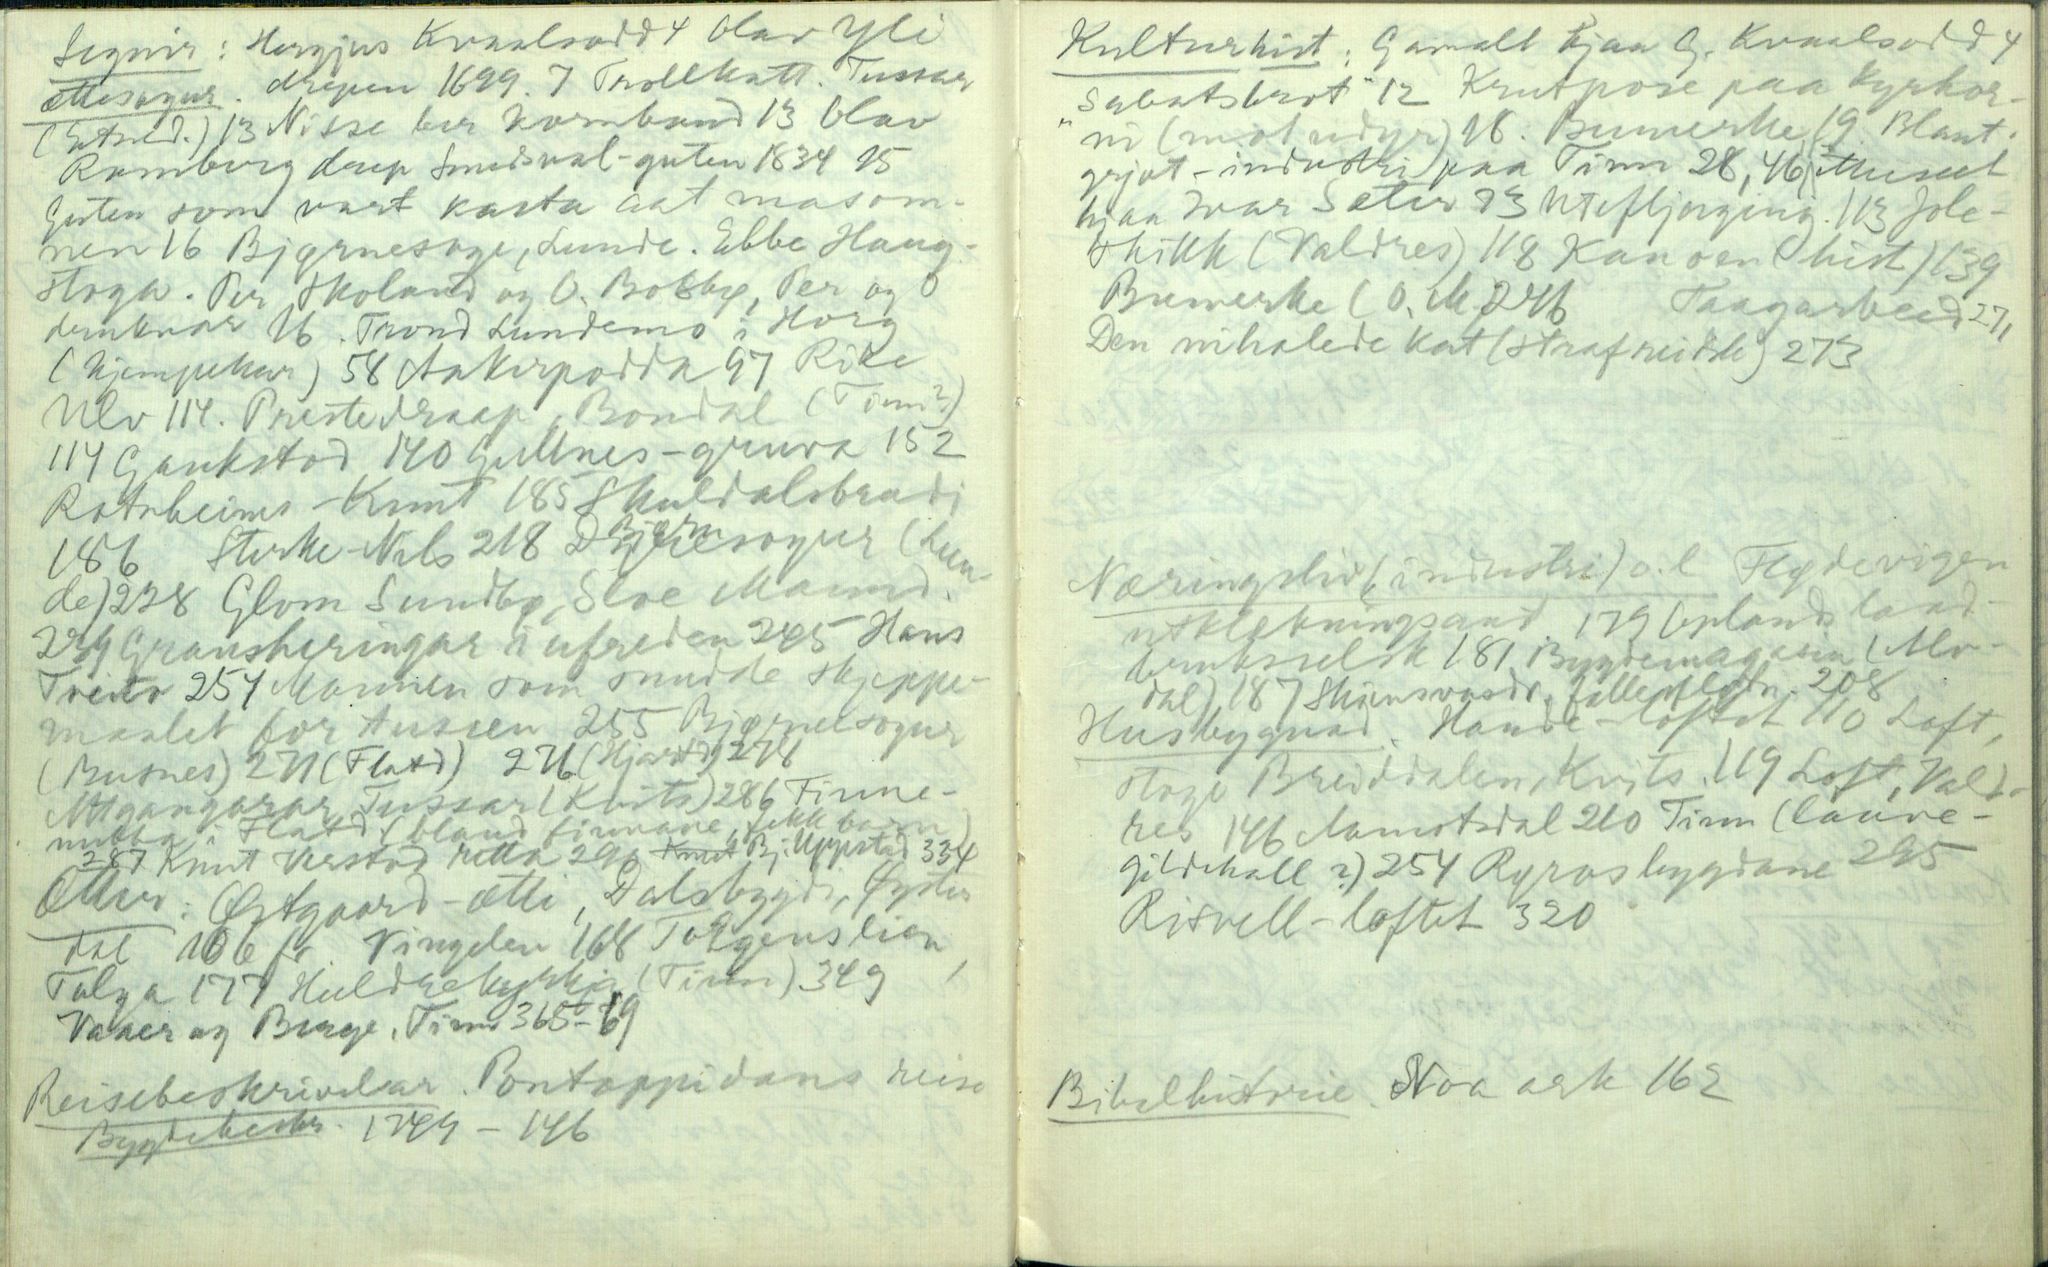 Segnir: Hergjus Kvaalsodd 4 Olav Yli
Ættesogur. drepen 1699. 7 Trollkatt. Tussar
13 Nisse ber kornband 13 Olav
Romberg drap Smedsval-guten 1834 15
Guten som vart kasta aat masom-
nen 16 Bjørnesoge, Lunde. Ebbe Haug-
stoga. Per Skoland og O. Per og
16. Trond Lundemo i Horg
(kjempekar) 58 Aakerpodda 97 Rike
Ulv 114. Prestedraap, Bondal (Tinn?)
114 Gaukstad 140 Gullnes-gruva 152
Rotnheims-Knut 185 Skuldalsbradi
186 Sterke-Nils 218 Bjørnesogur (Lun-
de) 228 Glom Sundbø, Sloe
Gransheringar i ufreden 245 Hans
Tveito 254 Mannen som snudde skjeppe-
maalet for tussen 255 Bjørnesogur
(Busnes) 271 (Flatd) 276 (Hjartd) 278
Attgangarar, Tussar (Kvits) 286 Finne-
nutta i Flatd (bland finnane, fekk barn)
287 Knut Verstad 296 Bj. Uppstad 334
Ætter: Østgaard-ætti, Dalsbygdi, Øyster
dal 106 fr. Vingelen 168 Torgenslien,
Tolga 177 Huldrekyrkja (Tinn) 349
Vaaer og Berge, Tinn 365-69
Reisebeskrivelsar. Pontoppidans reise
Bygdebeskr. 1749 - 146
Kulturhist: Gamalt hjaa G. Kvaalsodd 4
"Sabatsbrot" 12 Krutpose paa kyrkor-
ni (mot udyr) 16. Bumerke 19 Blaut-
grjot-industri paa Tinn 28, 46, Museet
hjaa Ivar Sæter 93 Utefljorging. 113 Jole-
skikk (Valdres) 118 Kanoen (hist) 139
Bumerke (O.M. 246 Taagarbeid 271,
Den nihalede kat (strafreidde) 273
Næringsliv (industri) o.l Flødevigen
utklekningsanst 179 Oplands land-
bruksselsk 181 Bygdemagasin (Mo-
dal) 187 Skiensvasdr. fellesfløtn. 208
Husbygnad. Hande-loftet 110 Loft,
stoge Breiddalen, Kvits. 119 Loft, Vald-
res 146 Aamotsdal 210 Tinn (lauve-
gildehall?) 254 Rørosbygdane 295
Risvell-loftet 320
Bibelhistorie. Noa ark 162